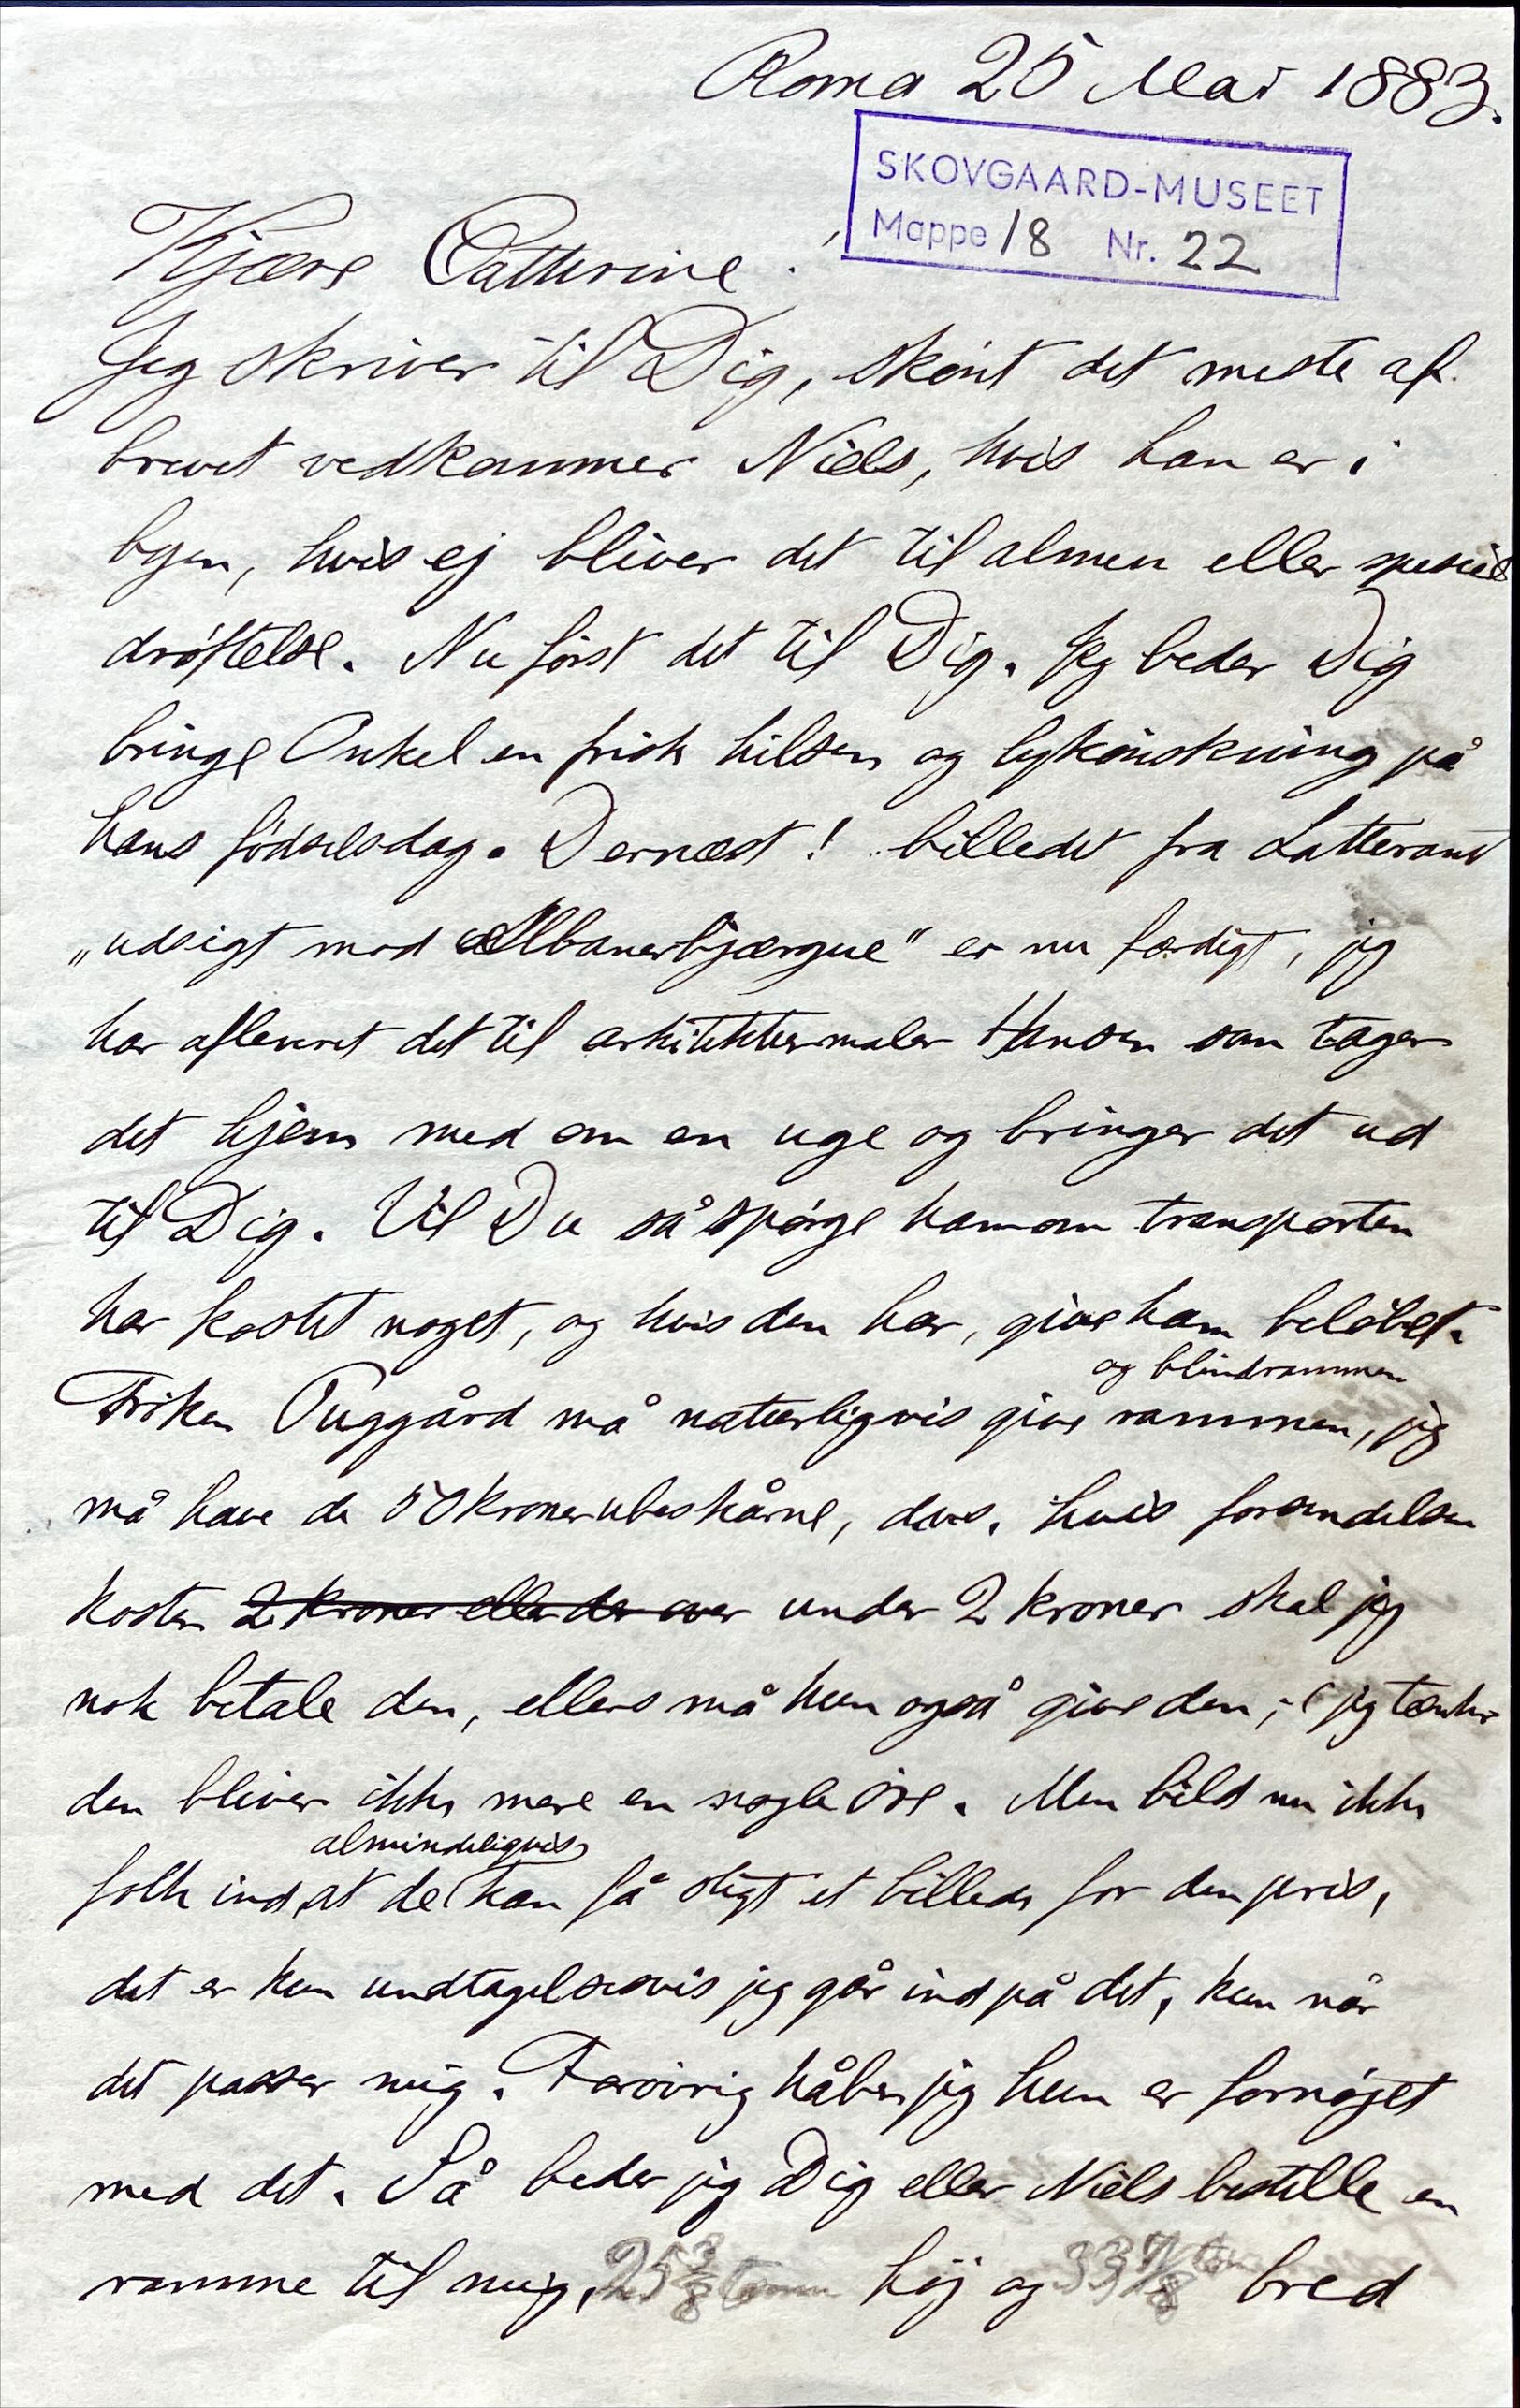 Roma 25 Mai 1883.
SKOVGAARD-MUSEET
Mappe 18 Nr. 22
Kjære Cathrine.
Jeg skriver til Dig, skönt det meste af
brevet vedkommer Niels, hvis han er i
byen, hvis ej bliver det til almen eller speciel
dröftelse. Nu först det til Dig. Jeg beder Dig
bringe Onkel en frisk hilsen og lykönskning på
hans födselsdag. Dernæst! billedet fra Latteranet
„udsigt mod Albanerbjærgne" er nu færdigt, jeg
har afleveret det til arkitekturmaler Hansen som tager
det hjem med om en uge og bringer det ud
til Dig. Vil Du så spörge ham om transporten
har kostet noget, og hvis den har, give ham belöbet.
og blindrammen
Fröken Puggård må naturligvis give rammen, jeg
må have de 50 kroner ubeskårne, dvs. hvis forsendelsen
koster 2 kroner eller der over under 2 kroner skal jeg
nok betale den, ellers må hun også give den, jeg tænker
den bliver ikke mere en nogle öre. Men bild nu ikke
almindeligvis
folk ind, at de kan få sligt et billede for den pris,
det er kun undtagelsesvis jeg går ind på det, kun når
det passer mig. Forövrig håber jeg hun er fornöjet
med det. Så beder jeg Dig eller Niels bestille en
ramme til mig, 25 3/8 tomm höj og 33 7/8 tom bred